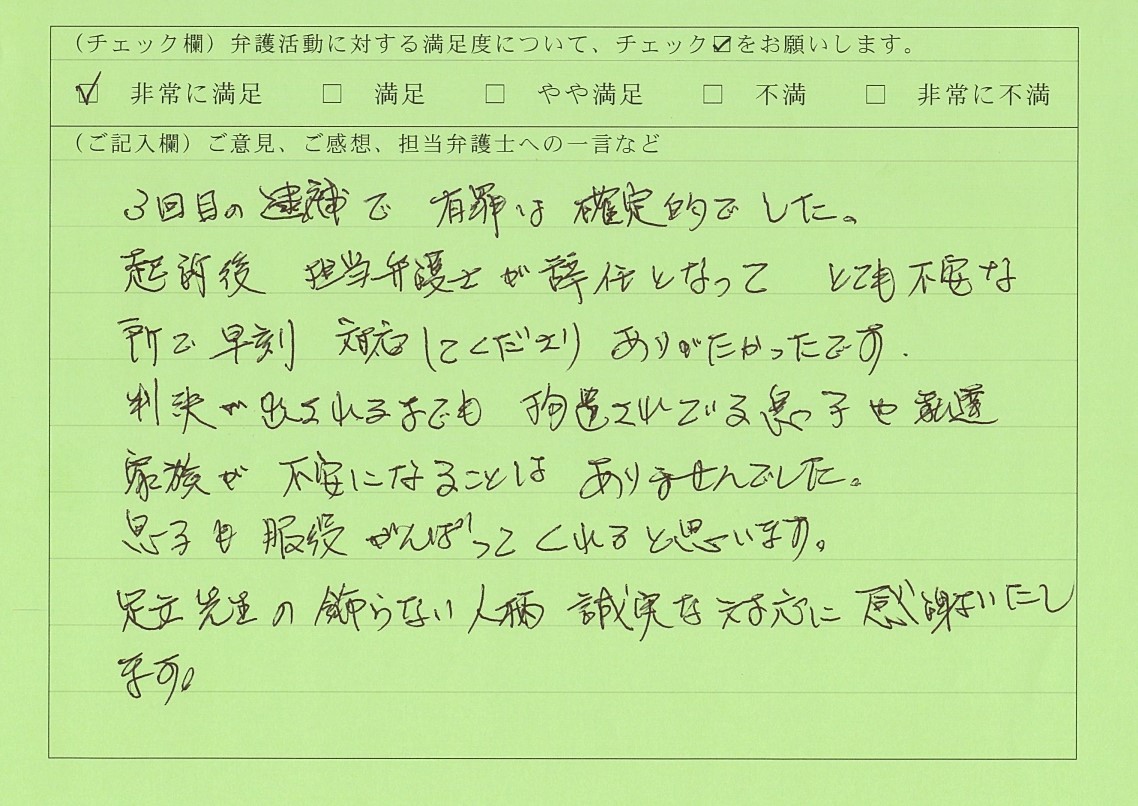 (チェック欄)弁護活動に対する満足度について、チェック☑をお願いします。
☑ 非常に満足 □ 満足 □ やや満足 □ 不満 □ 非常に不満
(ご記入欄)ご意見、ご感想、担当弁護士への一言など
3回目の逮捕で 有罪は 確定的でした。
起訴後 担当弁護士が 辞任となって とても不安な
所で 早刻 対応してくださり ありがたかったです.
判決が出されるまでも 拘置されている息っ子や
家族が 不安になることは ありませんでした。
息子も 服役 がんばってくれると思います。
足立先生の 飾らない人柄 誠実な対応に 感謝いたし
ます。